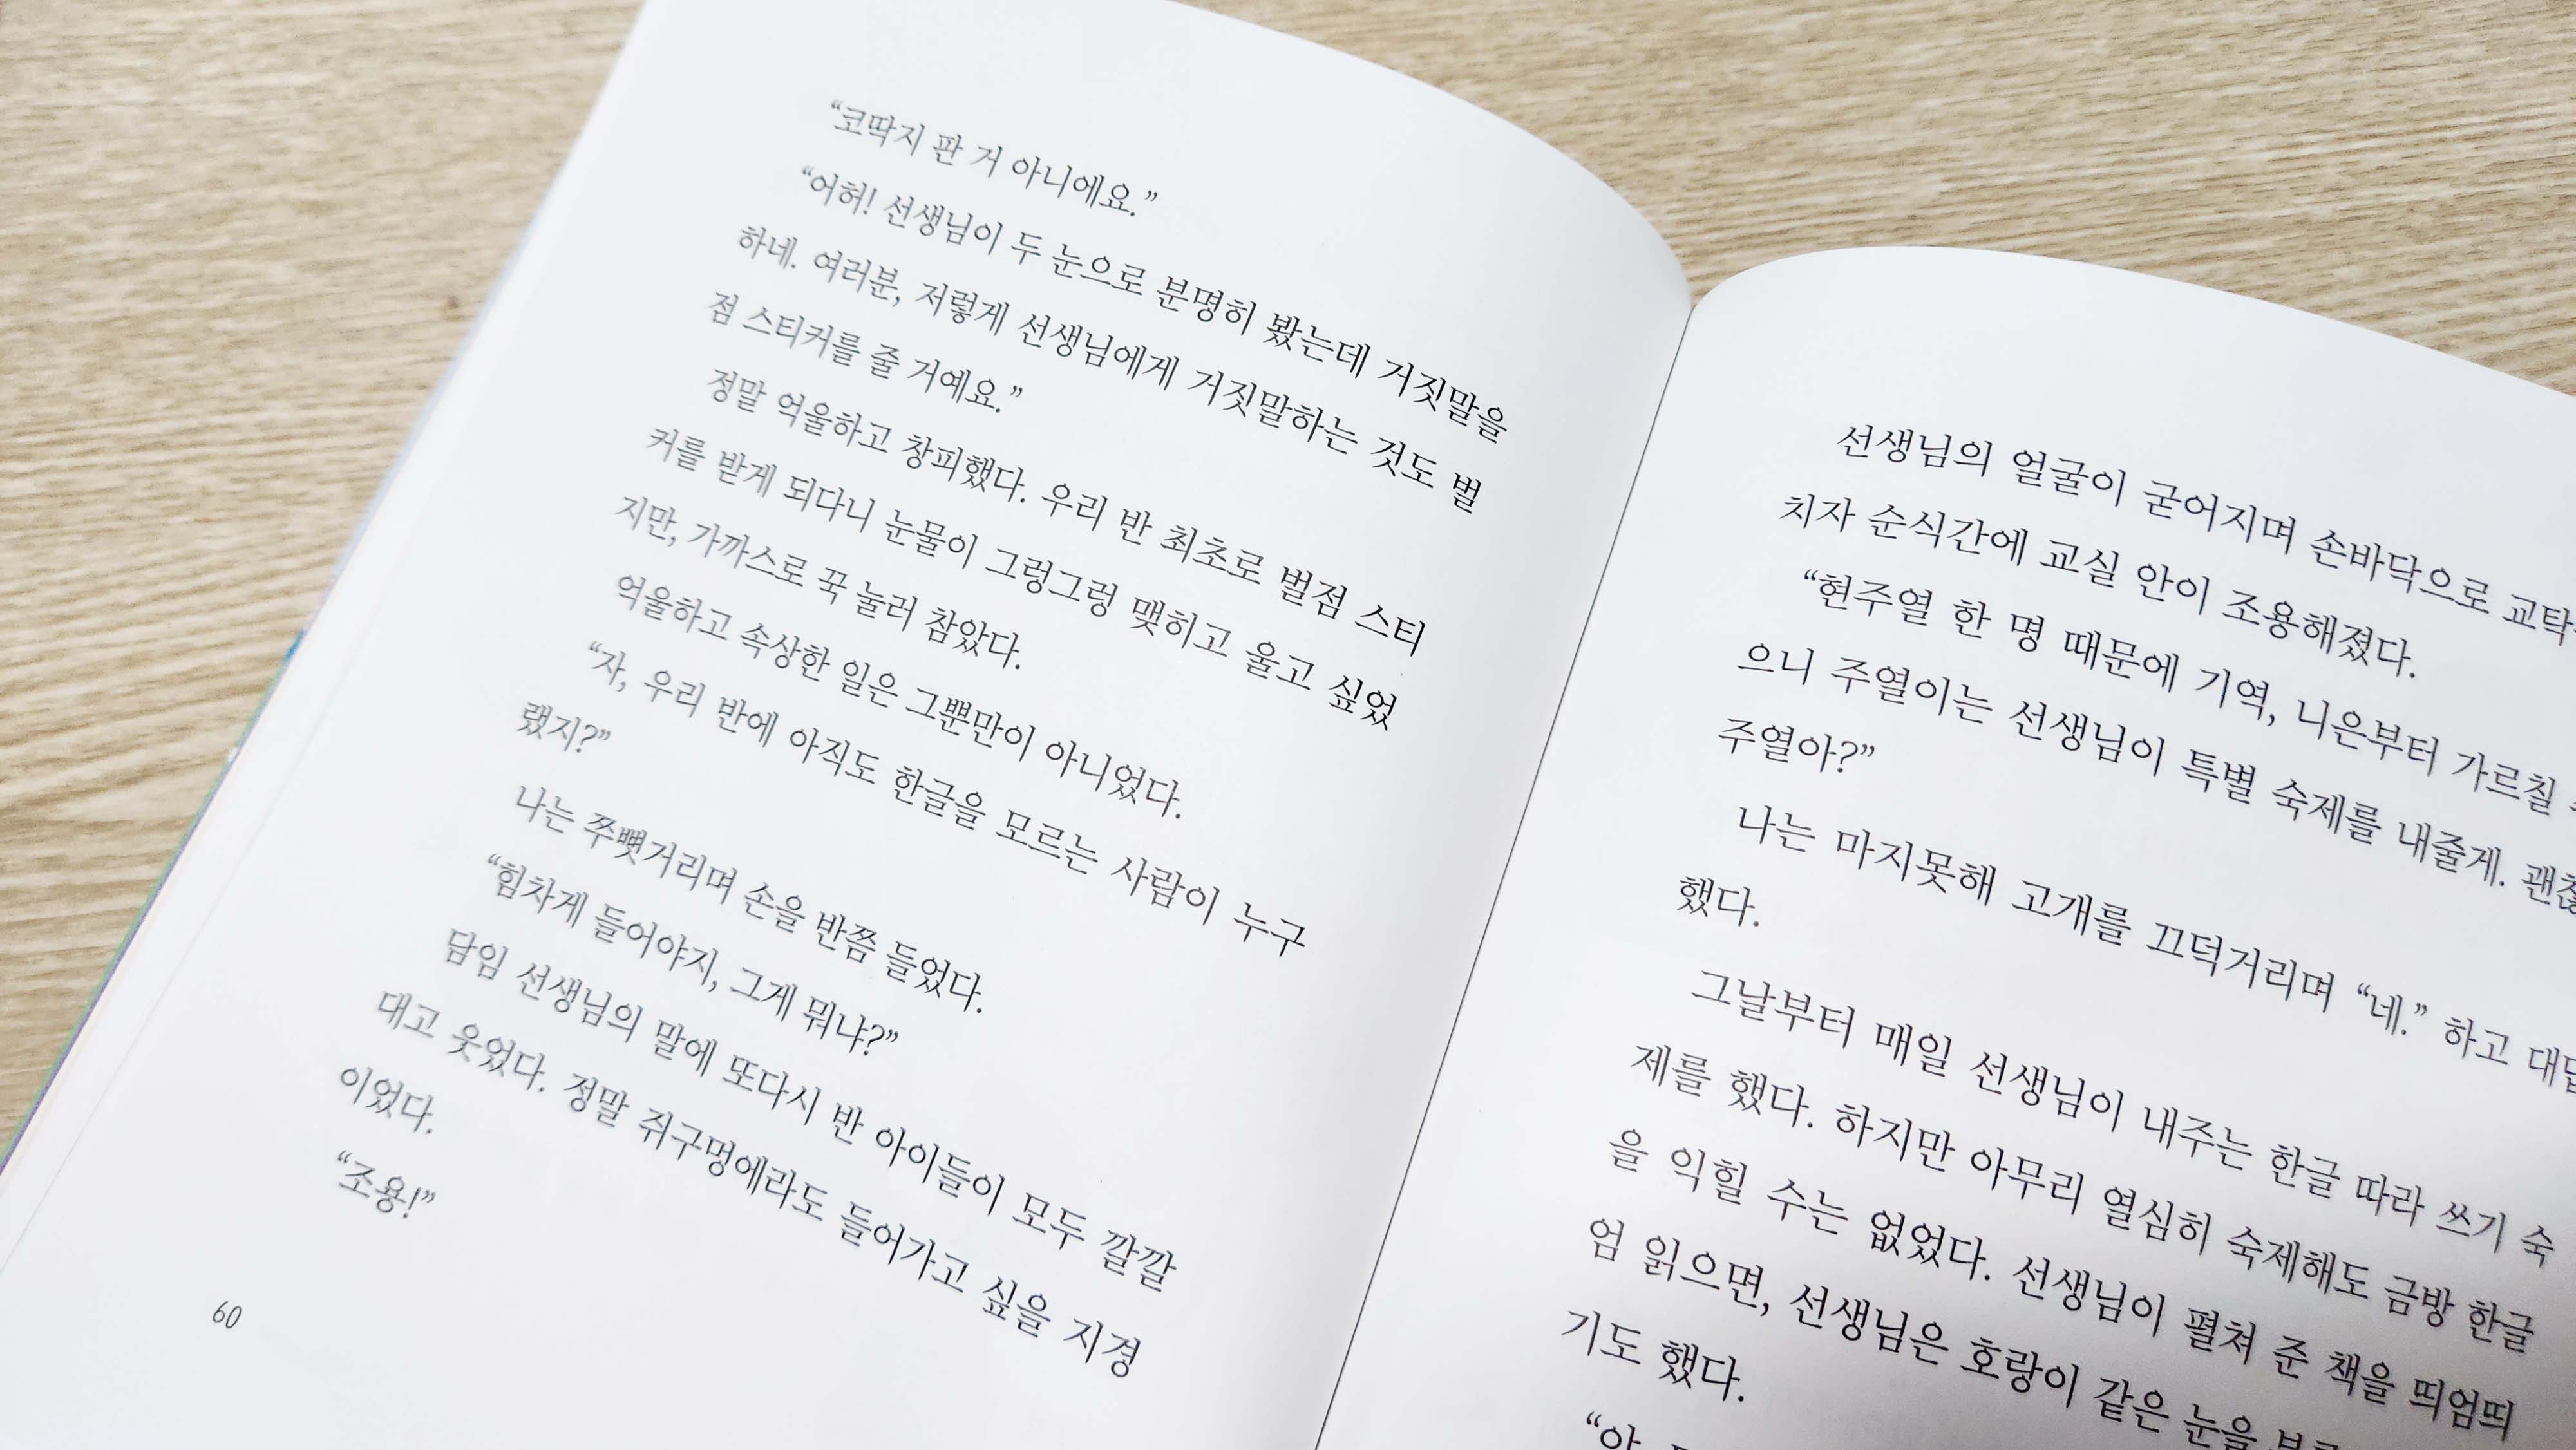 “코딱지 판 거 아니에요.”
“어허! 선생님이 두 눈으로 분명히 봤는데 거짓말을
하네. 여러분, 저렇게 선생님에게 거짓말하는 것도 벌
점 스티커를 줄 거예요.”
정말 억울하고 창피했다. 우리 반 최초로 벌점 스티
커를 받게 되다니 눈물이 그렁그렁 맺히고 울고 싶었
지만, 가까스로 꾹 눌러 참았다.
억울하고 속상한 일은 그뿐만이 아니었다.
“자, 우리 반에 아직도 한글을 모르는 사람이 누구
랬지?”
나는 쭈뼛거리며 손을 반쯤 들었다.
“힘차게 들어야지, 그게 뭐냐?”
담임 선생님의 말에 또다시 반 아이들이 모두 깔깔
대고 웃었다. 정말 쥐구멍에라도 들어가고 싶을 지경
이었다.
“조용!”
60
선생님의 얼굴이 굳어지며 손바닥으로 교탁
치자 순식간에 교실 안이 조용해졌다.
“현주열 한 명 때문에 기역, 니은부터 가르칠
으니 주열이는 선생님이 특별 숙제를 내줄게.
주열아?”
나는 마지못해 고개를 끄덕거리며 “네.” 하고
했다.
그날부터 매일 선생님이 내주는 한글 따라 쓰기 숙
제를 했다. 하지만 아무리 열심히 숙제해도 금방 한글
을 익힐 수는 없었다. 선생님이 펼쳐 준 책을 띄엄띄
엄 읽으면, 선생님은 호랑이 같은 눈을
기도 했다.
“아